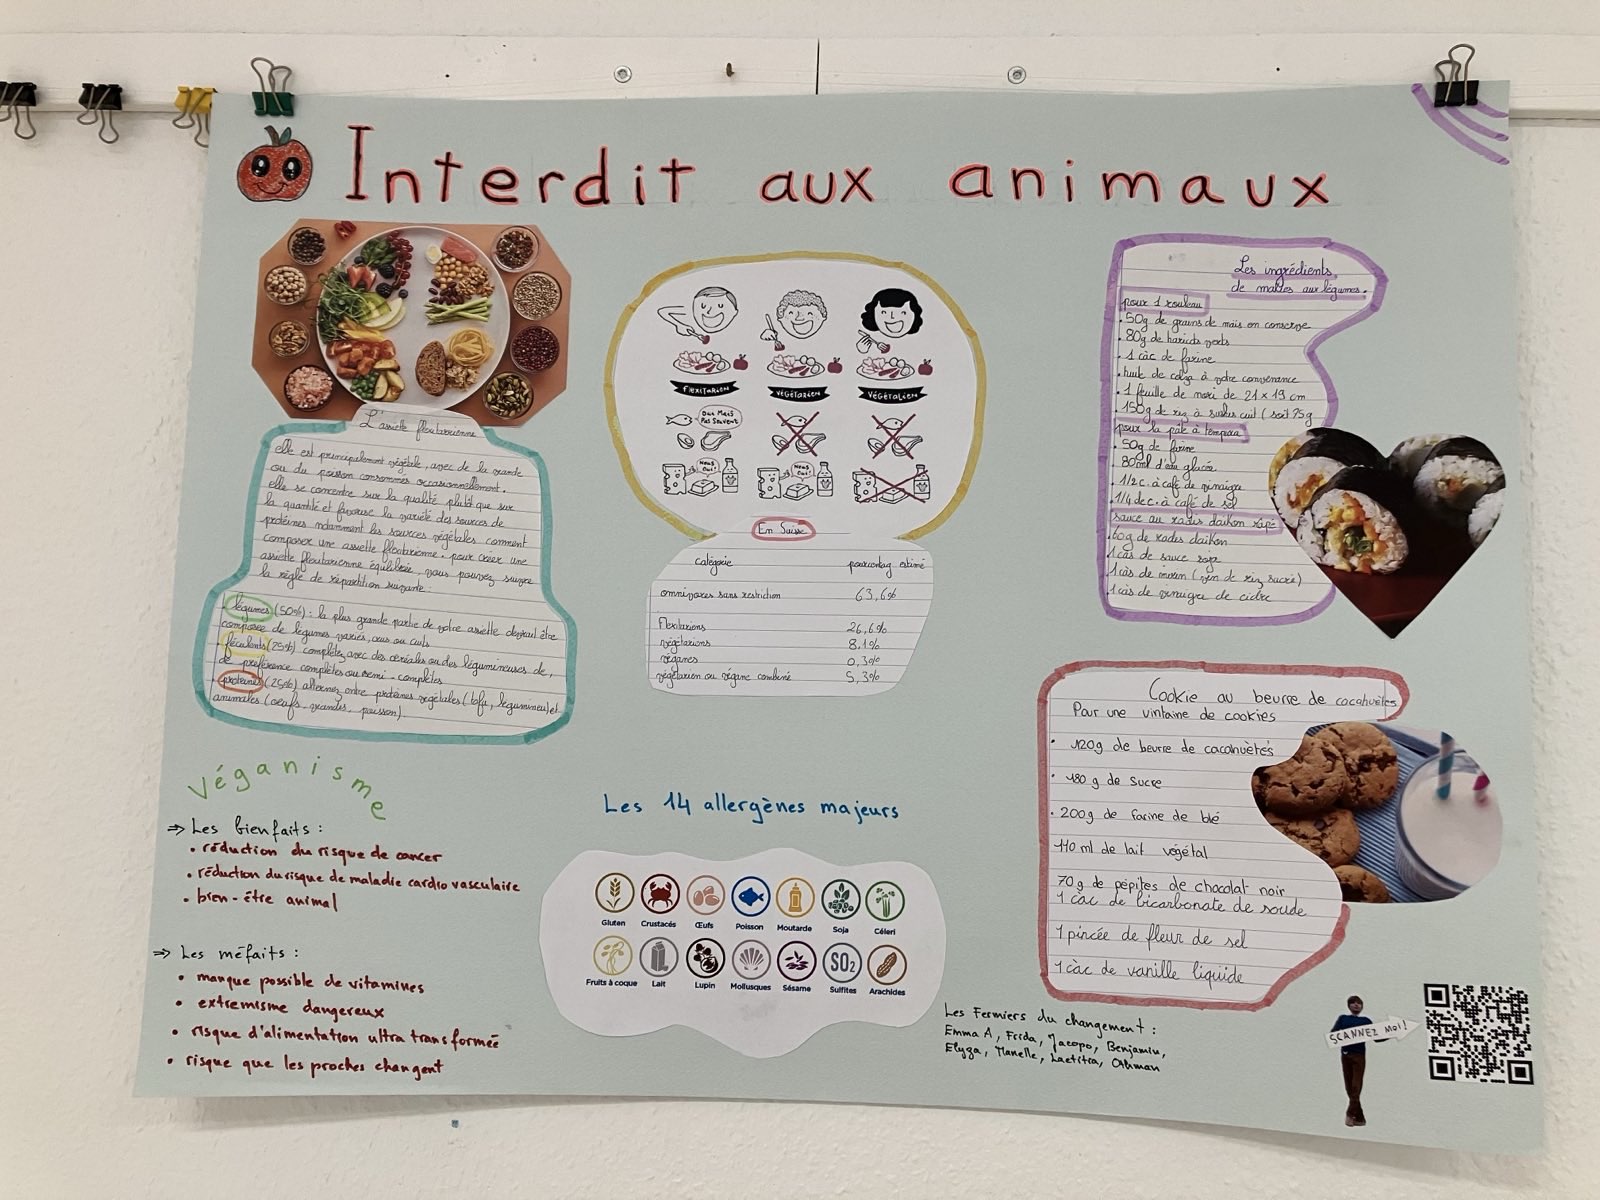 Interdit aux animaux
L'assiette flexitarienne
elle est principalement végétale, avec de la viande
ou du poisson consommés occasionnellement.
elle se concentre sur la qualité plutôt que sur
la quantité et favorise la variété des sources de
protéines notamment les sources végétales comment
composer une assiette flexitarienne. pour créer une
assiette flexitarienne équilibrée, vous pouvez suivre
la règle de répartition suivante.
légumes (50%) : la plus grande partie de votre assiette devrait être
composée de légumes variés, crus ou cuits
féculents (25%) complétez avec des céréales ou des légumineuses de,
de préférence complètes ou semi-complètes
proteines (25%) alternez entre protéines végétales (tofu, légumineu) et
animales (oeufs, viandes, poisson).
véganisme
⇒ Les bienfaits :
• réduction du risque de cancer
• réduction du risque de maladie cardio vasculaire
• bien-être animal
⇒ Les méfaits :
• manque possible de vitamines
• extremisme dangereux
• risque d'alimentation ultra transformée
• risque que les proches changent
FLEXITARIEN
VÉGÉTARIEN
VÉGÉTALIEN
OUI MAIS
PAS SOUVENT
NOUS
OUI!
NOUS
OUI!
En Suisse
catégorie pourcentag estimé
omnivores sans restriction 63,6%
Flexitariens 26,6%
végétariens 8,1%
véganes 0,3%
végétarien ou végane combiné 5,3%
Les 14 allergènes majeurs
Gluten Crustacés Œufs Poisson Moutarde Soja Céleri
SO2
Fruits à coque Lait Lupin Mollusques Sésame Sulfites Arachides
Les ingrédients
de makies aux légumes.
pour 1 rouleau
• 50g de grains de mais en conserve
• 80g de haricots verts
• 1 càc de farine
• huile de colza à votre convenance
• 1 feuille de nori de 21 x 19 cm
• 150g de riz à sushis cuit (soit 75g
pour la pâte à tempura
• 50g de farine
• 80ml d'eau glacée
• 1/2 c. à café de vinaigre
• 1/4 de c. à café de sel
sauce au radis daikon râpé
• 60g de rades daikon
• 1 càs de sauce soja
• 1 càs de mirin (vin de riz sucré)
• 1 càs de vinaigre de cidre
Cookie au beurre de cacahuètes
Pour une vintaine de cookies
• 120g de beurre de cacahuètes
• 180 g de sucre
• 200g de farine de blé
110 ml de lait végétal
70g de pépites de chocolat noir
1 cac de bicarbonate de soude
1 pincée de fleur de sel
1 càc de vanille liquide
Les Fermiers du changement :
Emma A, Frida, Jacopo, Benjamin,
Elyza, Manelle, Laetitia, Othman
SCANNEZ MOI!